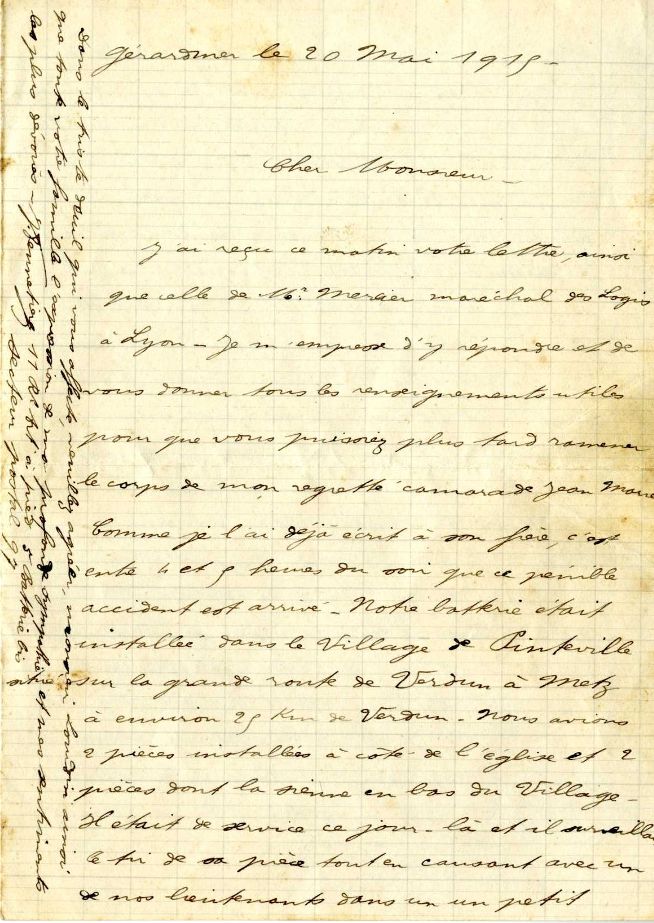 Gérardmer le 20 Mai 1915 -
Cher Monsieur -
J'ai reçu ce matin votre lettre, ainsi
que celle de Mr. Mercier maréchal des Logis
à Lyon - Je m'empresse d'y répondre et de
vous donner tous les renseignements utiles
pour que vous puissiez plus tard ramener
le corps de mon regretté camarade Jean Marie
Comme je l'ai déjà écrit à son frère, c'est
entre 4 et 5 heures du soir que ce pénible
accident est arrivé - Notre batterie était
installée dans le Village de Pinteville
située sur la grande route de Verdun à Metz
à environ 25 Km de Verdun - Nous avions
2 pièces installées à côté de l'église et 2
pièces dont la sienne en bas du Village -
Il était de service ce jour-là et il surveillait
le tir de sa pièce tout en causant avec un
de nos lieutenants dans un un petit
Dans le triste deuil qui vous affecte, veuillez agréer, monsieur Loudin ainsi
que toute votre famille l'expression de ma profonde sympathie et mes sentiments
les plus dévoués - 11 à pied 5 Batterie bis
secteur postal 97